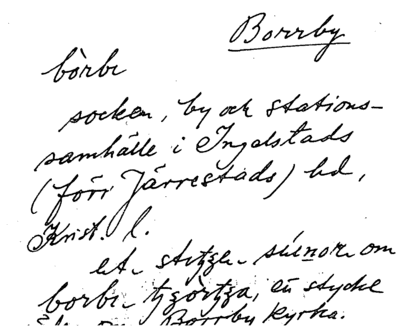 Borrby
bòrbi
socken, by och stations-
samhälle i Ingelstads
(förr Järrestads) hd,
Krist. l.
et stytze
om
borbi
stycke
Borrby kyrka.